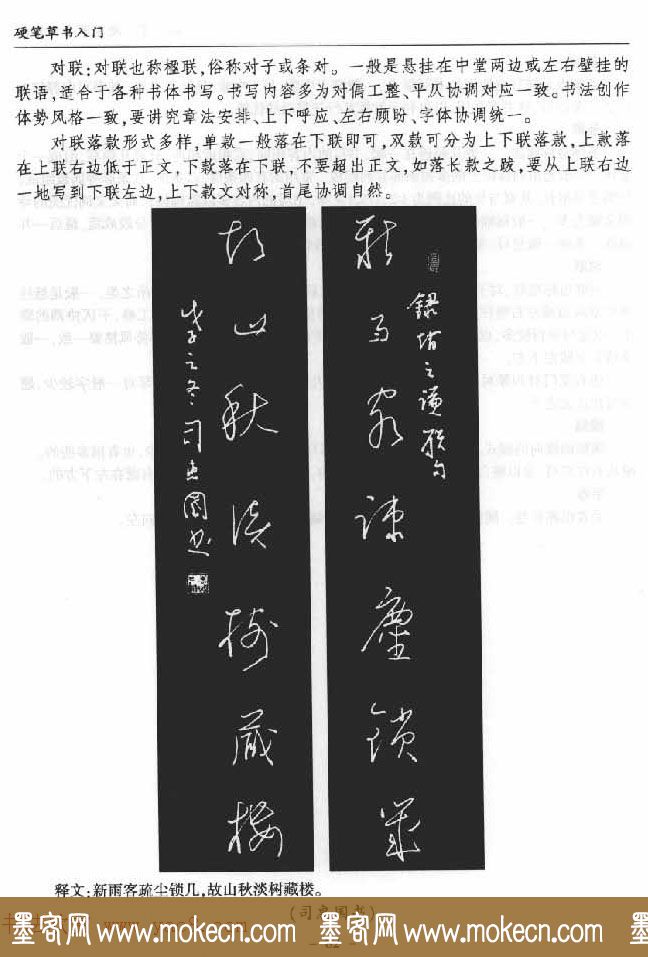 硬笔草书入门
对联：对联也称楹联，俗称对子或条对。一般是悬挂在中堂两边或左右壁挂的
联语，适合于各种书体书写。书写内容多为对偶工整、平仄协调对应一致。书法创作
体势风格一致，要讲究章法安排、上下呼应、左右顾盼、字体协调统一。
对联落款形式多样，单款一般落在下联即可，双款可分为上下联落款，上款落
在上联右边低于正文，下款落在下联，不要超出正文，如落长款之跋，要从上联右边
一地写到下联左边，上下款文对称，首尾协调自然。
新雨客疏塵鎖几
故山秋淡樹藏樓
戊子之冬司惠國书
释文：新雨客疏尘锁几，故山秋淡树藏楼。
(司惠国书)
墨客网 www.mokecn.com 墨客网 www.mokecn.com 墨客网